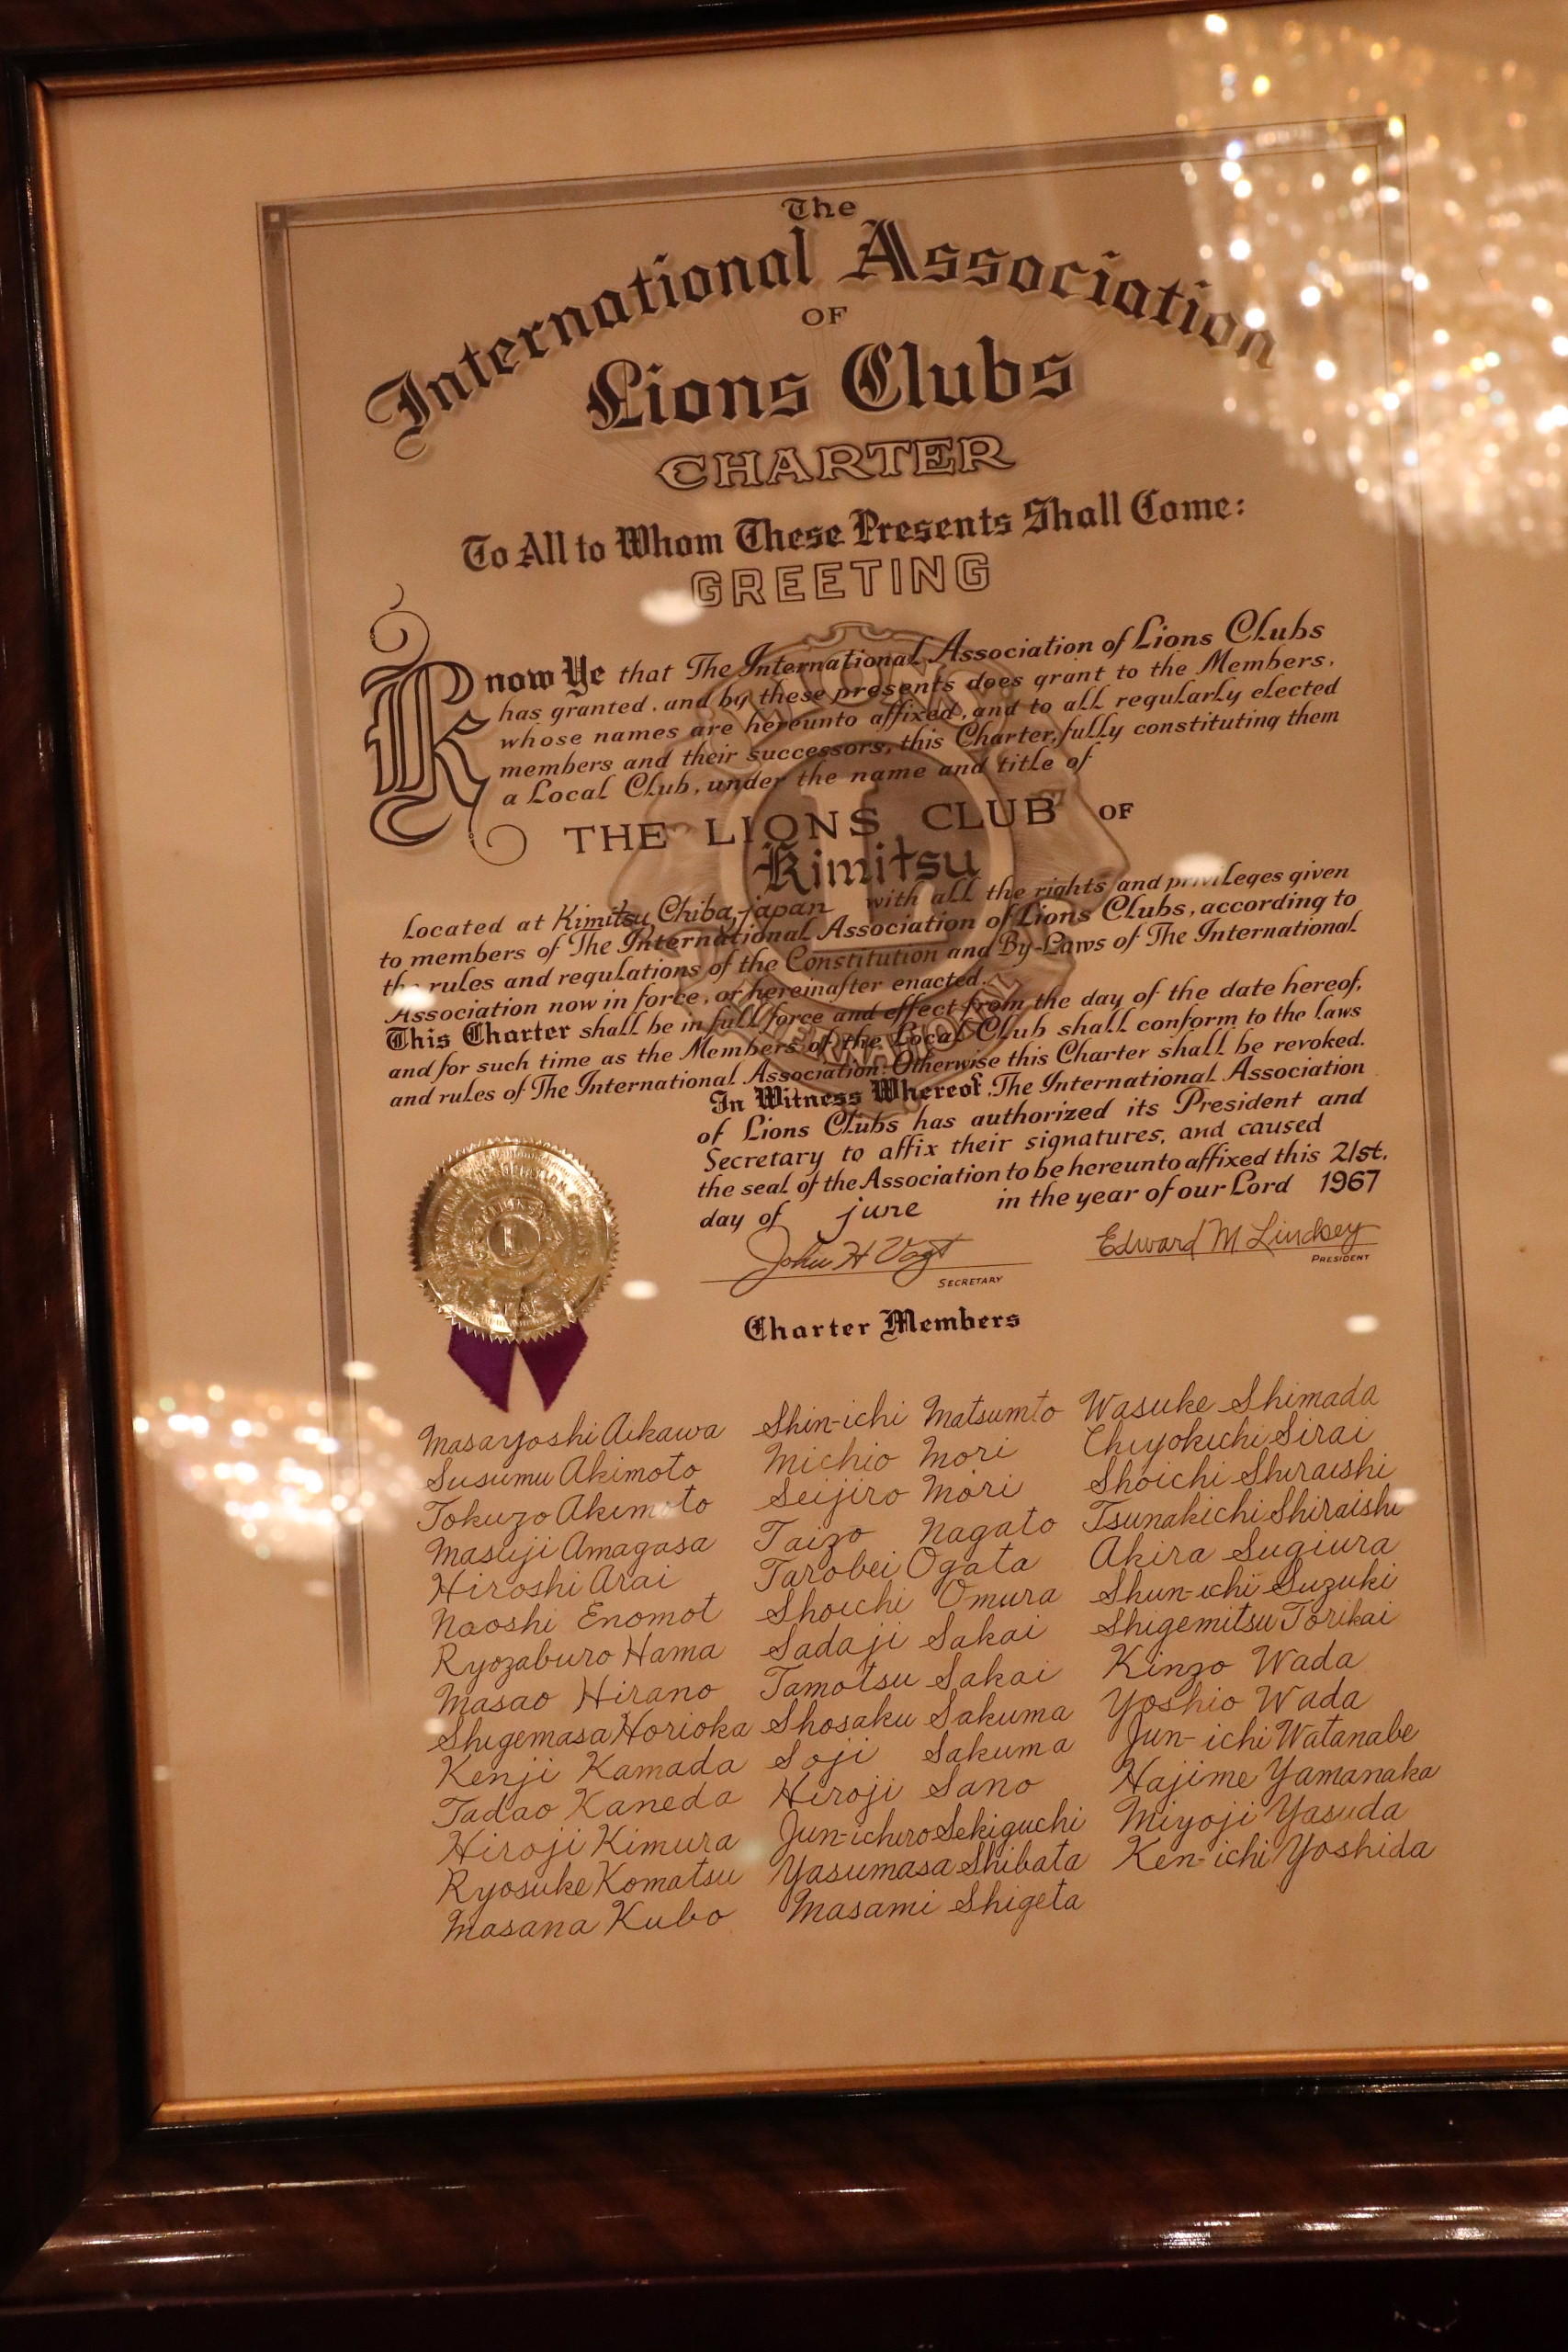 The
International Association
OF
Lions Clubs
CHARTER
To All to Whom These Presents Shall Come:
GREETING
Know Ye that The International Association of Lions Clubs
has granted, and by these presents does grant to the Members,
whose names are hereunto affixed, and to all regularly elected
members and their successors, this Charter, fully constituting them
a Local Club, under the name and title of
THE LIONS CLUB OF
Kimitsu
Located at Kimitsu, Chiba, japan with all the rights and privileges given
to members of The International Association of Lions Clubs, according to
the rules and regulations of the Constitution and By-Laws of The International
Association now in force, or hereinafter enacted.
This Charter shall be in full force and effect from the day of the date hereof,
and for such time as the Members of the Local Club shall conform to the laws
and rules of The International Association. Otherwise this Charter shall be revoked.
In Witness Whereof, The International Association
of Lions Clubs has authorized its President and
Secretary to affix their signatures, and caused
the seal of the Association to be hereunto affixed this 21st.
day of june in the year of our Lord 1967
John H Vogt Edward M Lindsey
SECRETARY PRESIDENT
Charter Members
Masayoshi Aikawa Shin-ichi Matsumto Wasuke Shimada
Susumu Akimoto Michio Mori Chiyokichi Sirai
Tokuzo Akimoto Seijiro Mori Shoichi Shiraishi
Masuji Amagasa Taizo Nagato Tsunakichi Shiraishi
Hiroshi Arai Tarobei Ogata Akira Sugiura
Naoshi Enomot Shoichi Omura Shun-ichi Suzuki
Ryozaburo Hama Sadaji Sakai Shigemitsu Torikai
Masao Hirano Tamotsu Sakai Kinzo Wada
Shigemasa Horioka Shosaku Sakuma Yoshio Wada
Kenji Kamada Soji Sakuma Jun-ichi Watanabe
Tadao Kaneda Hiroji Sano Hajime Yamanaka
Hiroji Kimura Jun-ichiro Sekiguchi Miyoji Yasuda
Ryosuke Komatsu Yasumasa Shibata Ken-ichi Yoshida
Masana Kubo Masami Shigeta